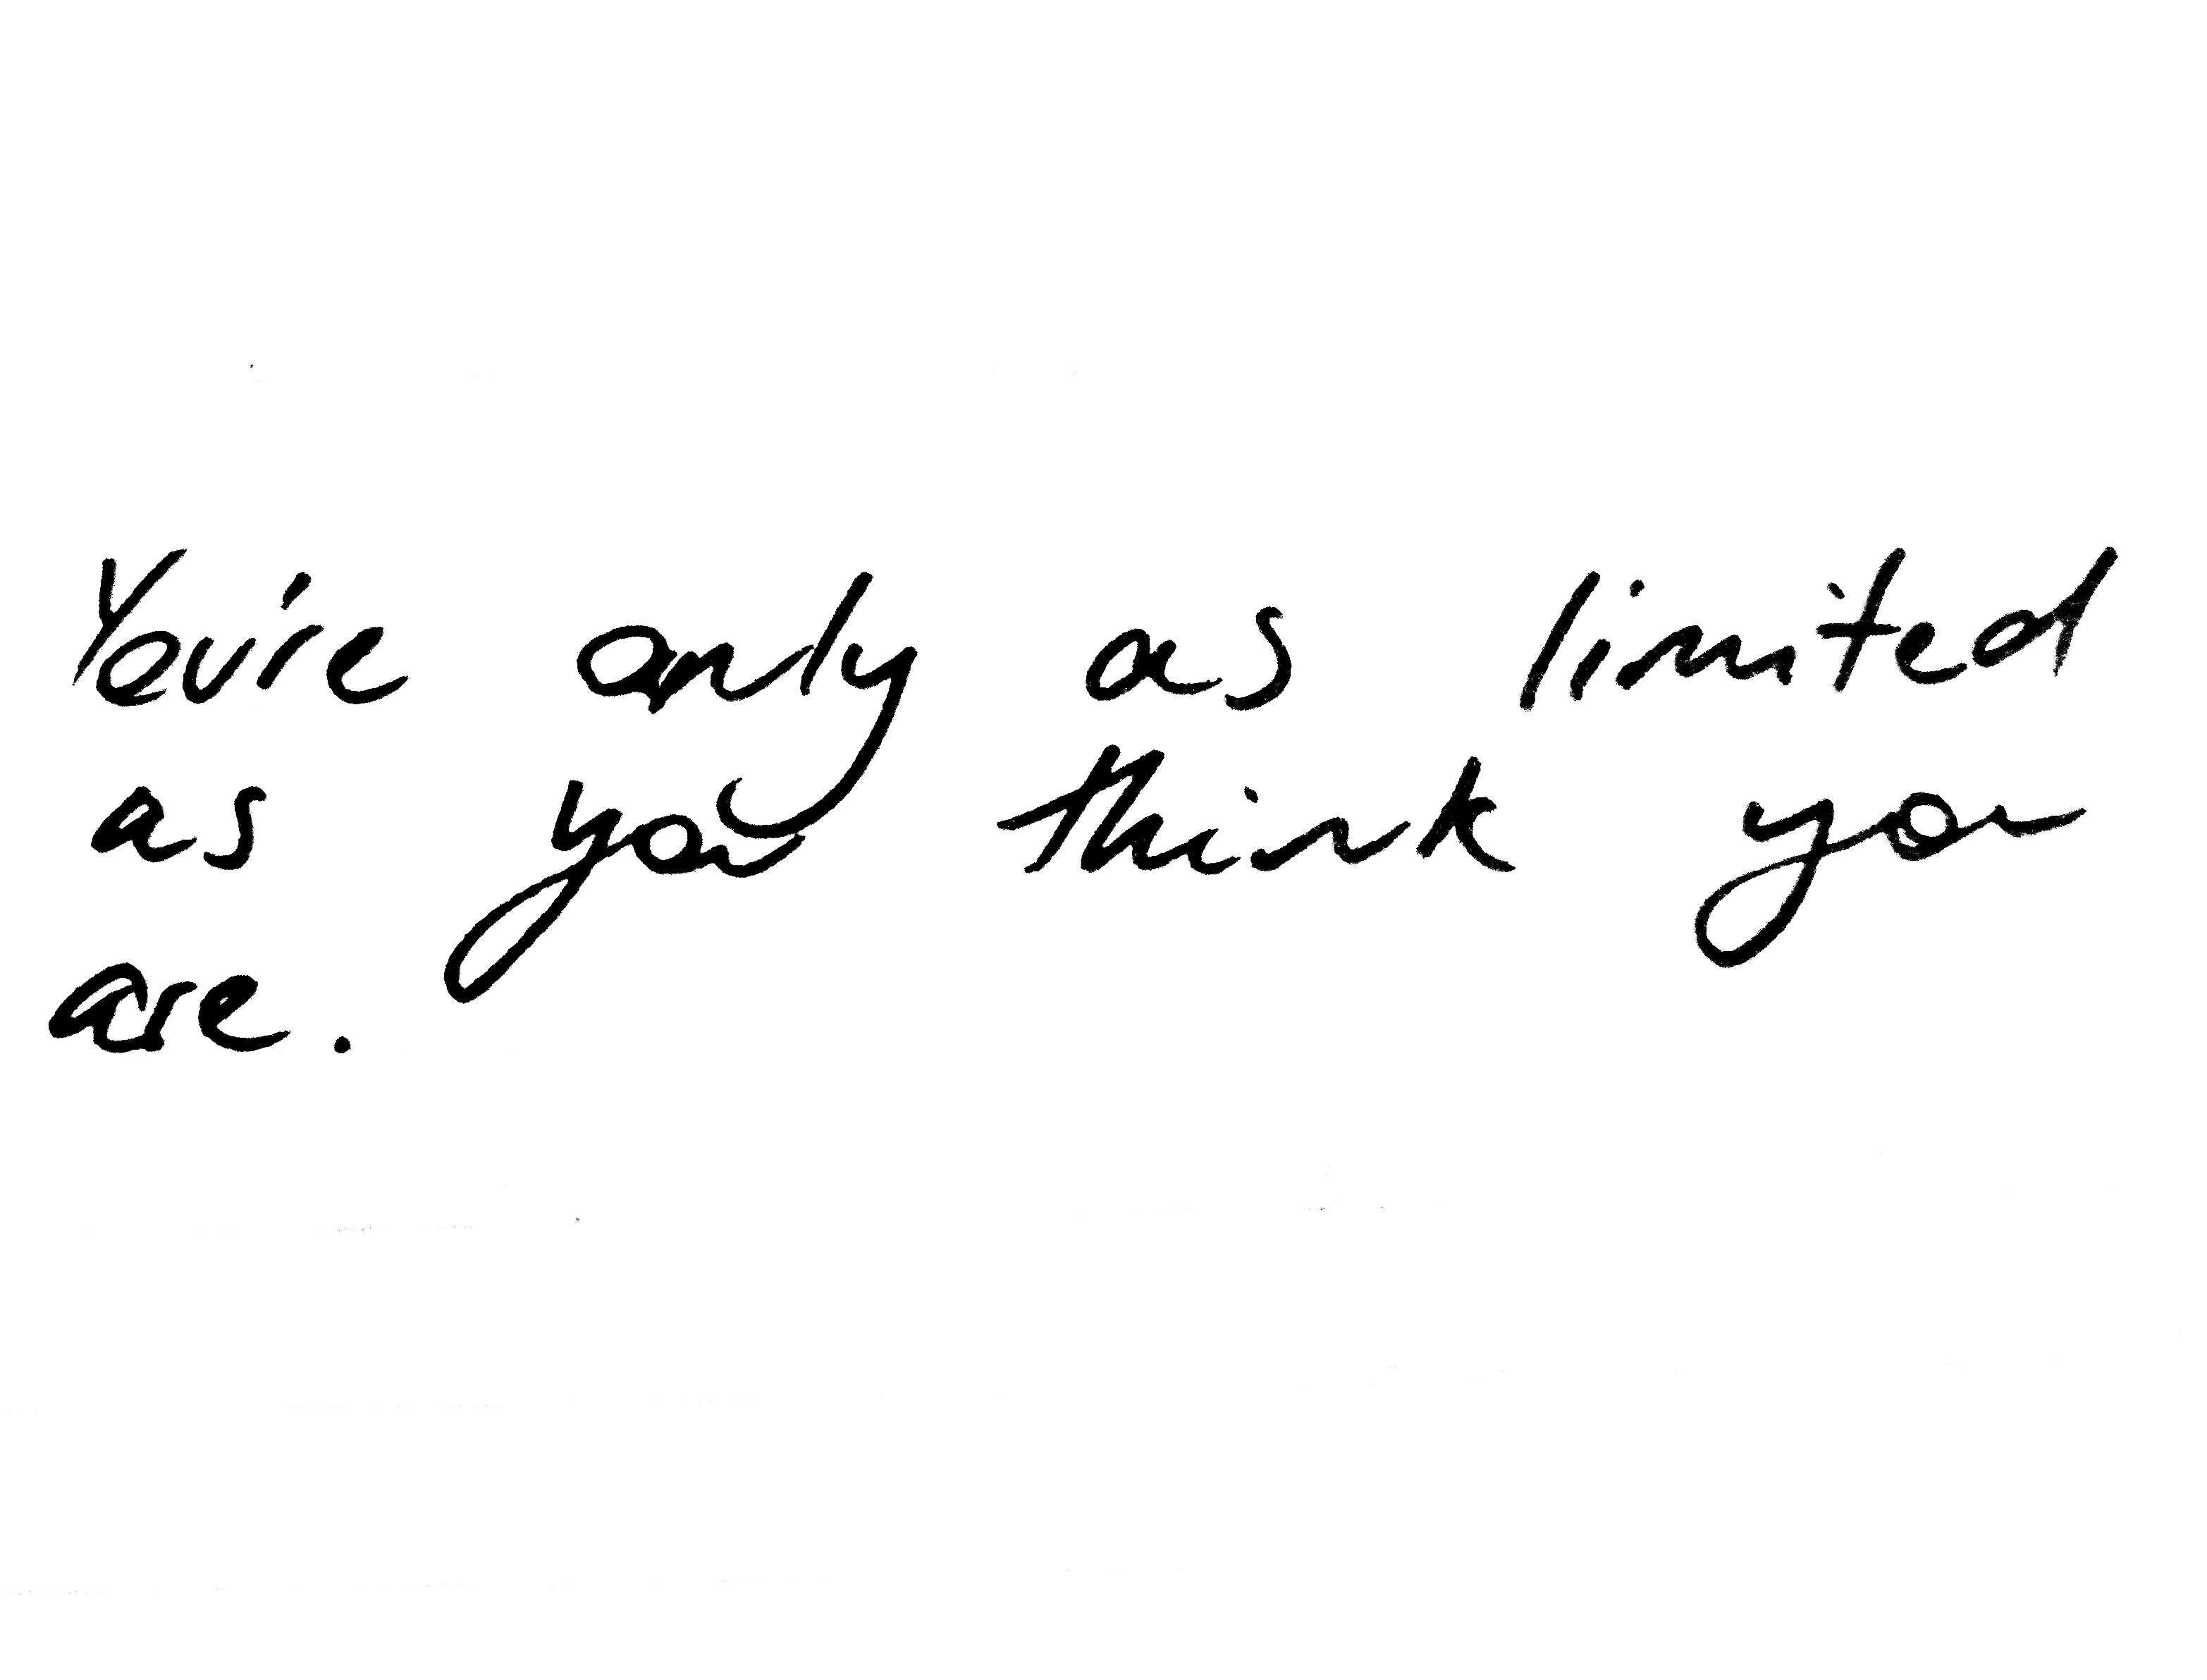 You're only as limited
as you think you
are.